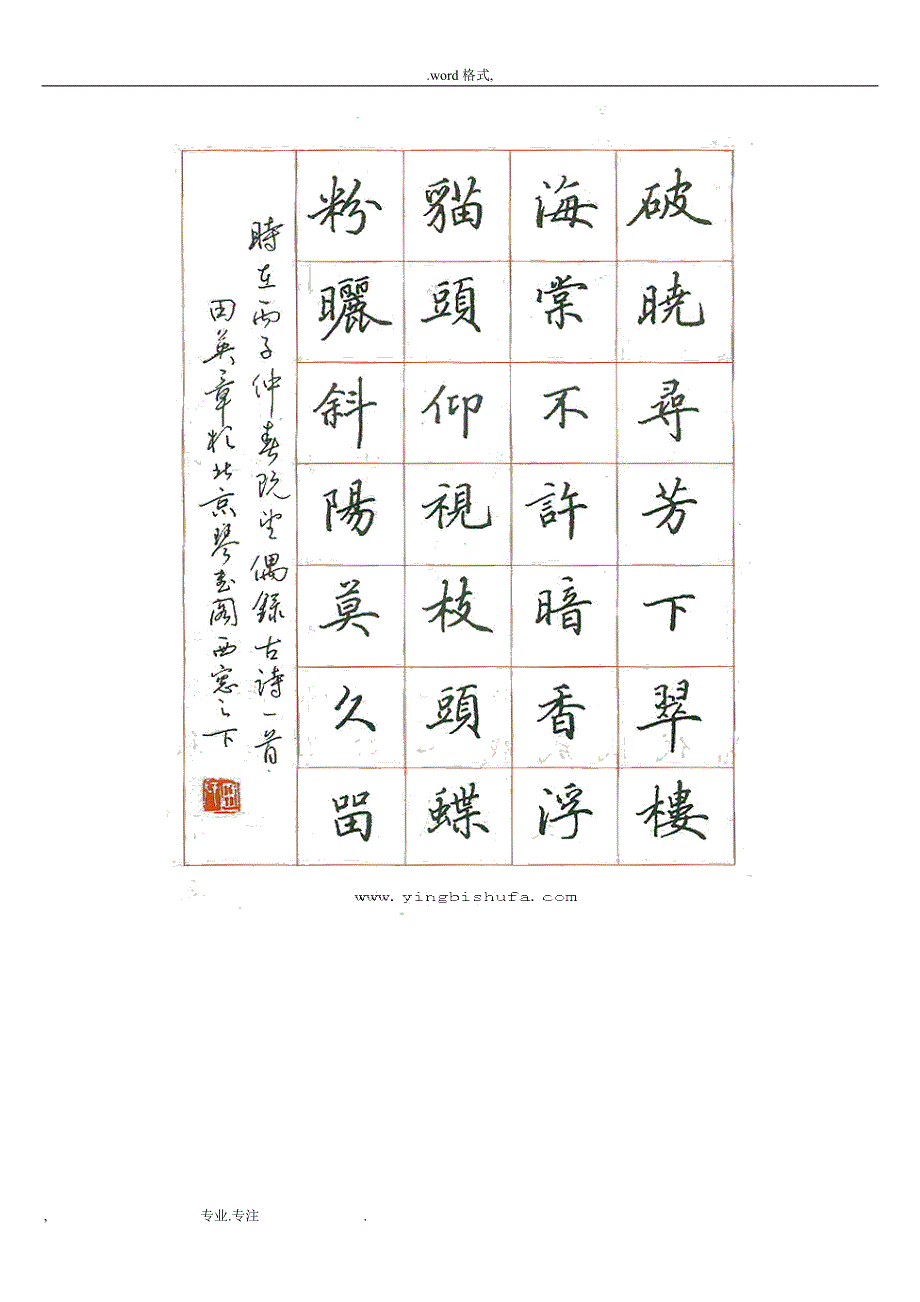 .word 格式,
破曉尋芳下翠樓
海棠不許暗香浮
貓頭仰視枝頭蝶
粉曬斜陽莫久留
時在丙子仲春既望偶錄古詩一首
田英章於北京琴書閣西窗之下
www.yingbishufa.com
, 专业.专注 .